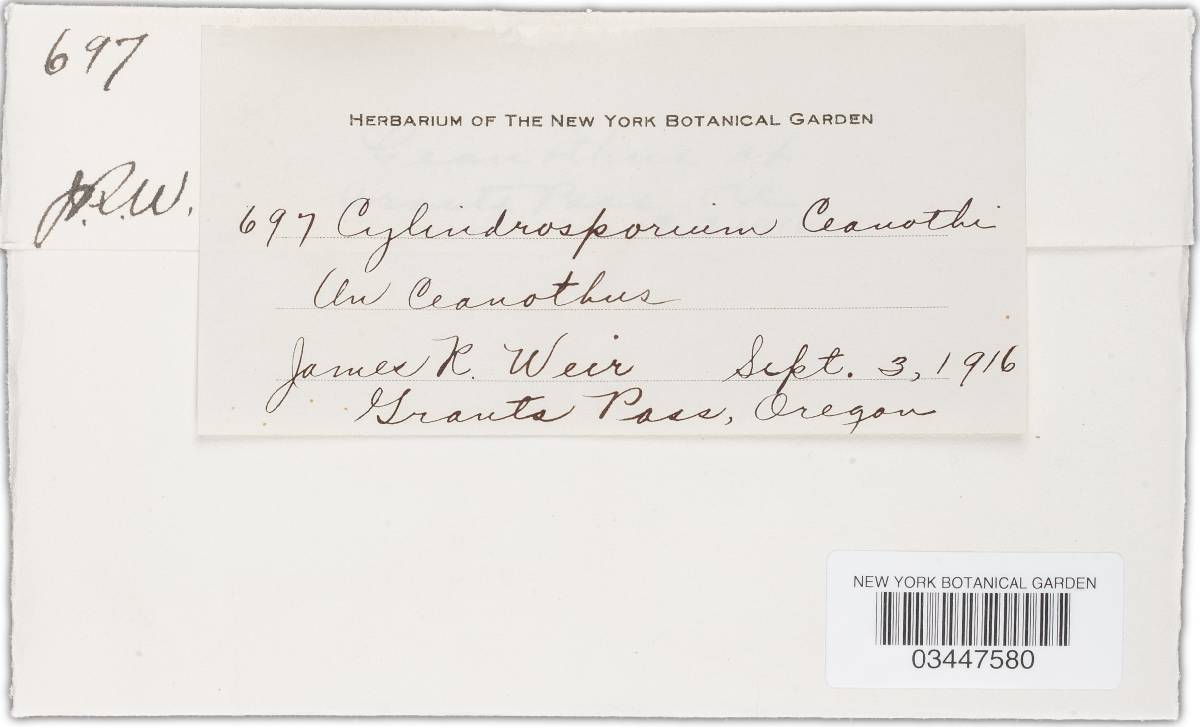 697
J.R.W.
HERBARIUM OF THE NEW YORK BOTANICAL GARDEN
697 Cylindrosporium Ceanothi
On Ceanothus
James R. Weir Sept. 3, 1916
Grants Pass, Oregon
NEW YORK BOTANICAL GARDEN
03447580